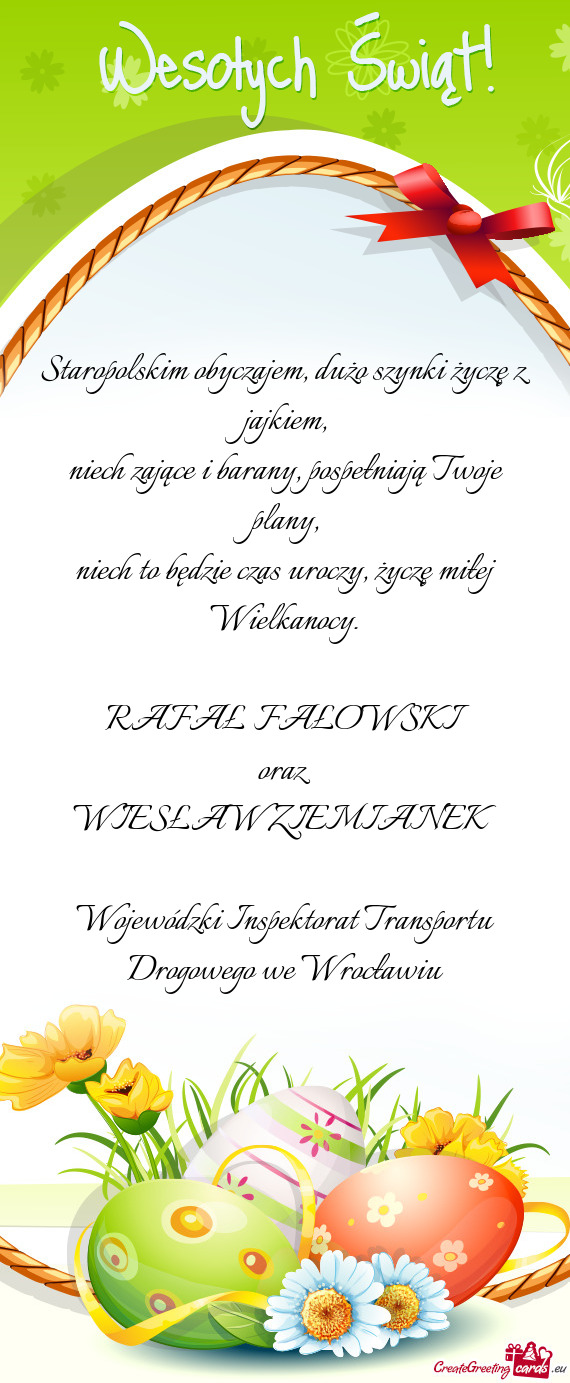 Wesołych Świąt!
Staropolskim obyczajem, dużo szynki życzę z
jajkiem,
niech zające i barany, pospełniają Twoje
plany,
niech to będzie czas uroczy, życzę miłej
Wielkanocy.
RAFAŁ FAŁOWSKI
oraz
WIESŁAW ZIEMIANEK
Wojewódzki Inspektorat Transportu
Drogowego we Wrocławiu
CreateGreeting cards .eu